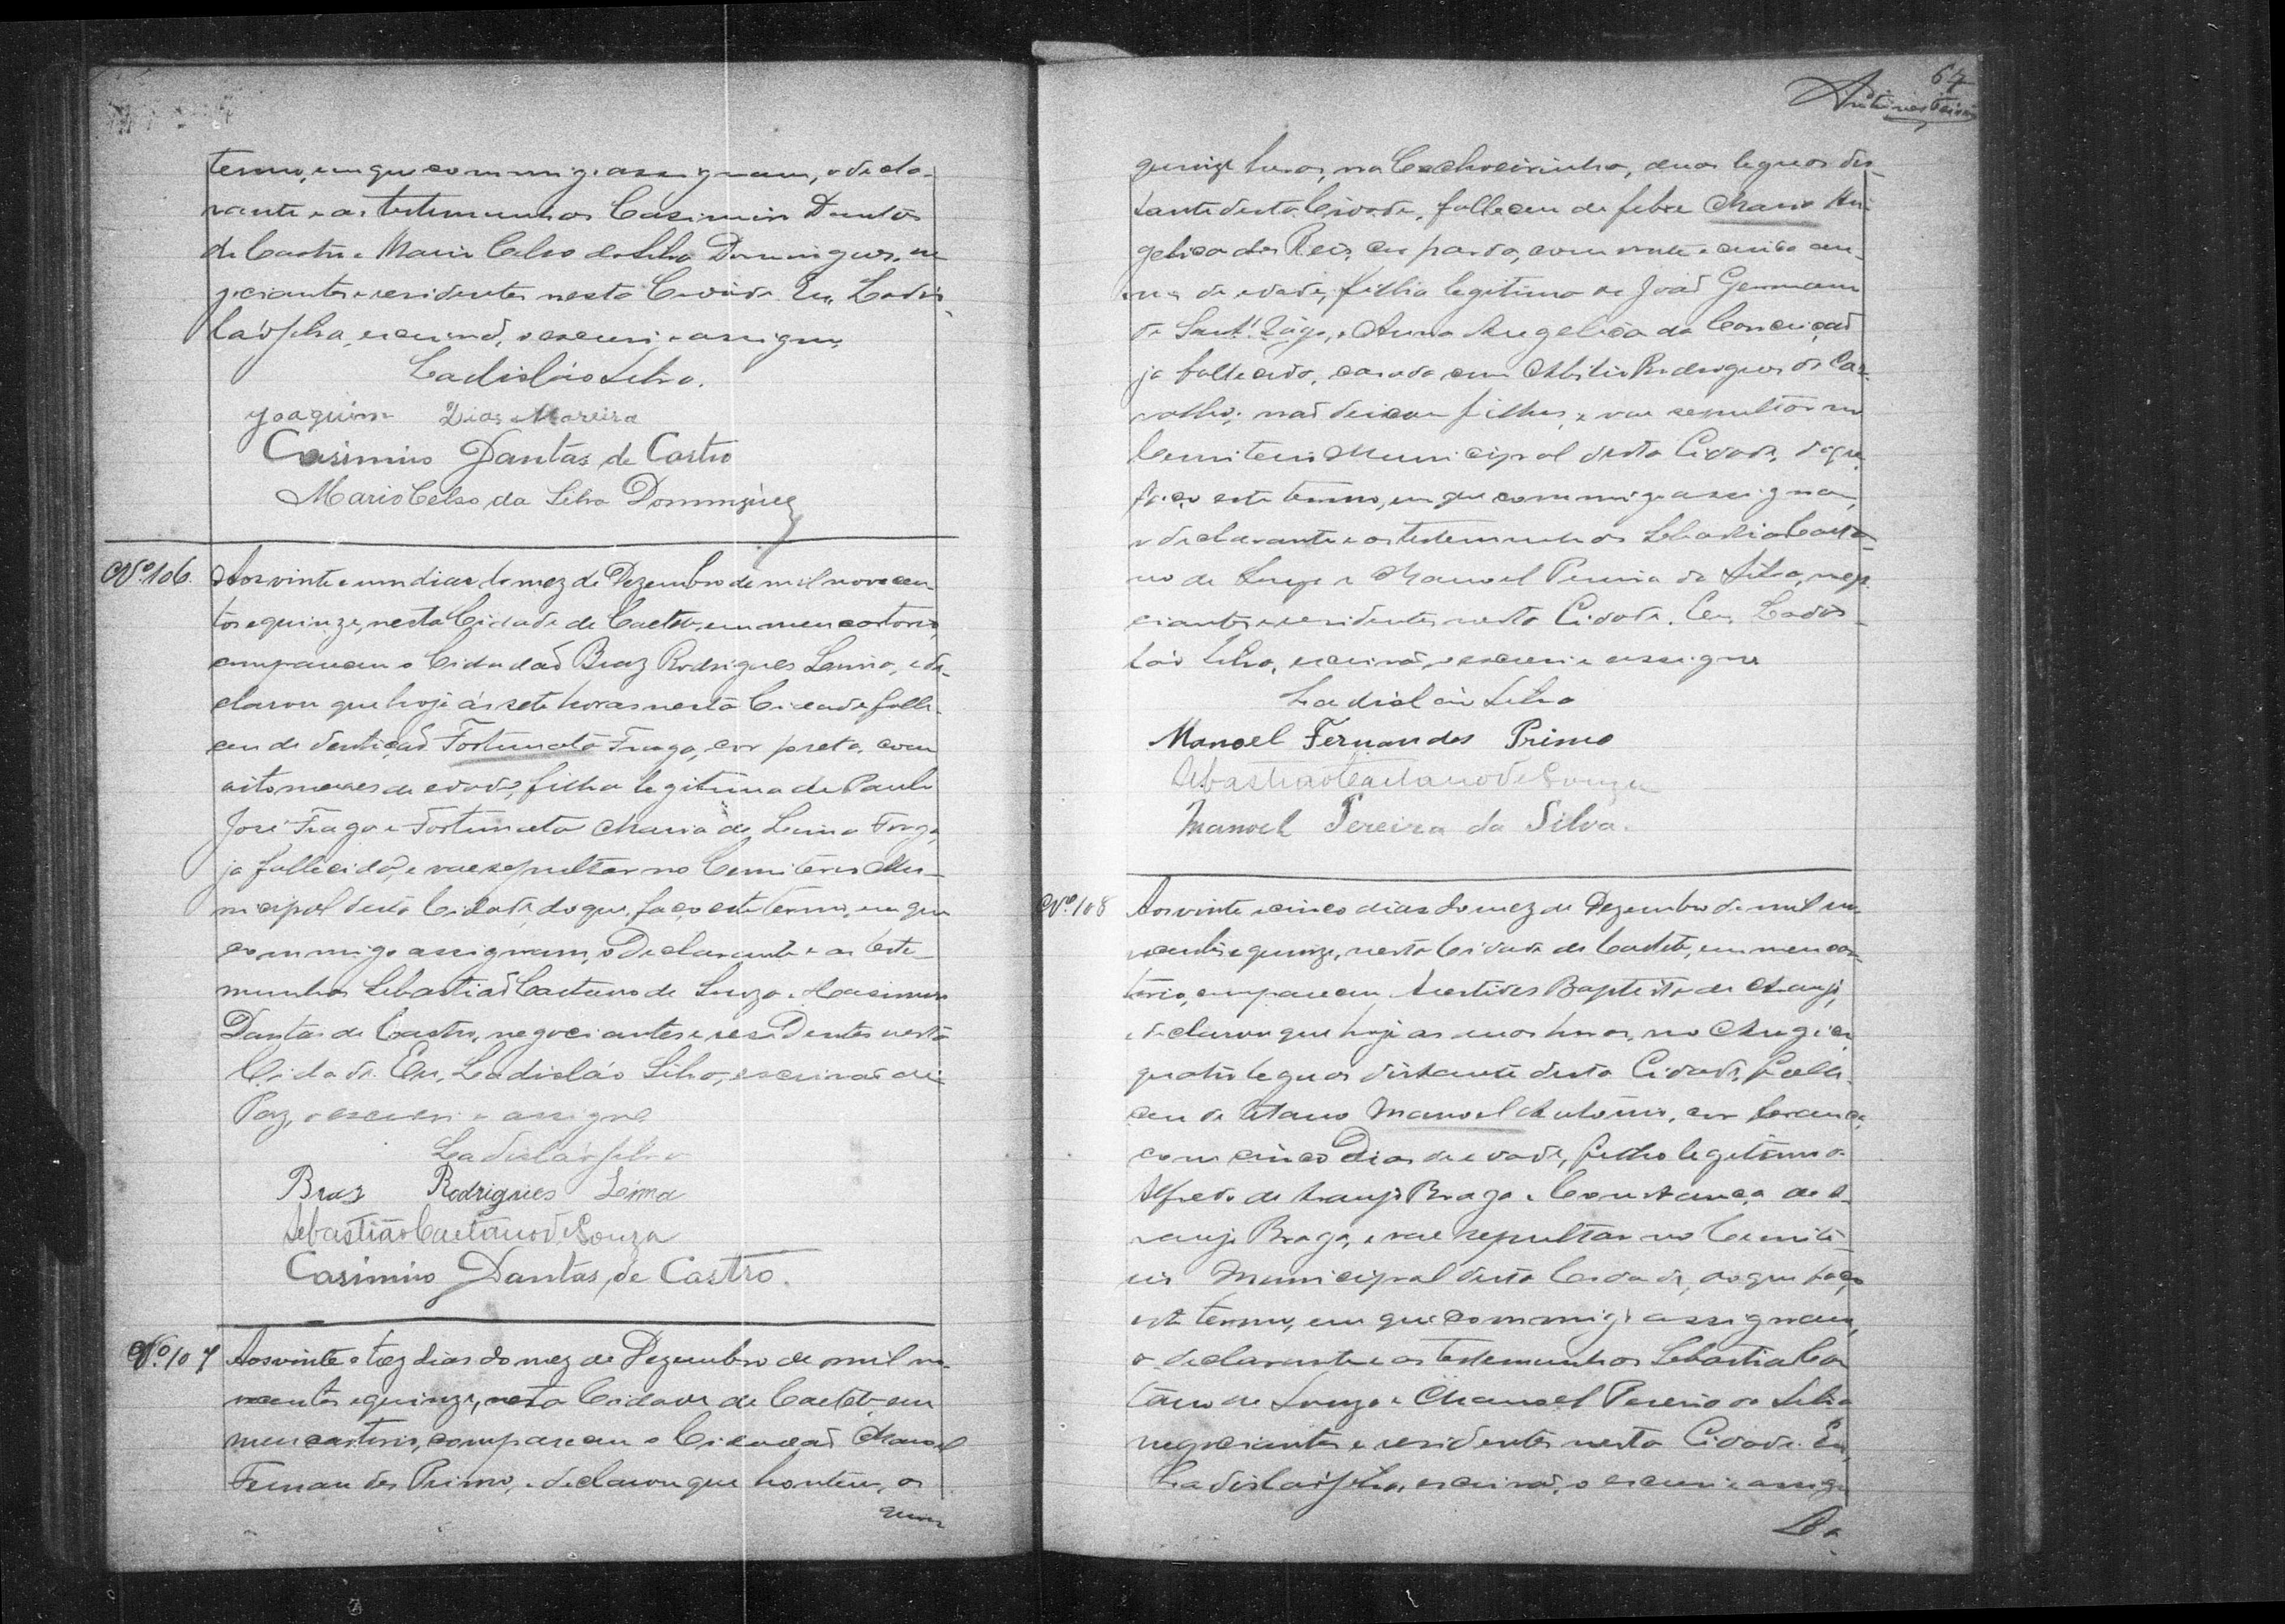 termo, em que commigo assignam, o decla-
rante e as testemunhas Casimiro Dantas
de Castro e Mario Celso da Silva Domingues, ne
gociantes e residentes nesta Cidade. Eu, Ladis-
láo Silva, escrivão, o escrevi e assigno
Ladisláo Silva.
Joaquim Dias Moreira
Casimiro Dantas de Castro
Mario Celso da Silva Domingues
Nº 106. Aos vinte e um dias do mez de Dezembro de mil novecen-
tos e quinze, nesta Cidade de Caeteté, em meu cartorio,
compareceu o Cidadão Braz Rodrigues Lima, e de-
clarou que hoje ás sete horas nesta Cidade falle-
ceu de dentição Fortunata Fraga, cor preta, com
oito mezes de edade, filha legitima de Paulo
José Fraga e Fortunata Maria de Lima Fraga,
ja fallecida, e vae sepultar no Cemiterio Mu-
nicipal desta Cidade, do que faço este termo, em que
commigo assignam, o declarante e as teste-
munhas Sebastião Caetano de Souza e Casimiro
Dantas de Castro, negociantes e residentes nesta
Cidade. Eu, Ladisláo Silva, escrivão de
Paz, o escrevi e assigno.
Ladisláo Silva
Braz Rodrigues Lima
Sebastião Caetano de Souza
Casimiro Dantas de Castro.
Nº 107 Aos vinte e trez dias do mez de Dezembro de mil no-
vecentos e quinze, nesta Cidade de Caeteté em
meu cartorio, compareceu o Cidadão Manoel
Fernandes Primo, e declarou que hontem, as
quin
67
quinze horas, na Cachoeirinha, duas leguas dis-
tante desta Cidade, falleceu de febre Maria An-
gelica dos Reis, cor parda, com vinte e cinco an-
nos de edade, filha legitima de João Germano
de Sant'Iago, e Anna Angelica da Conceição
ja fallecida, casada com Abilio Rodrigues de Car-
valho; não deixou filhos, e vae sepultar no
Cemiterio Municipal desta Cidade, do que
faço este termo, em que commigo assignam,
o declarante e as testemunhas Sebastião Caeta-
no de Souza e Manoel Pereira da Silva, nego-
ciantes e residentes nesta Cidade. Eu, Ladis-
láo Silva, escrivão, o escrevi e assigno
Ladisláo Silva
Manoel Fernandes Primo
Sebastião Caetano de Souza
Manoel Pereira da Silva.
Nº 108 Aos vinte e cinco dias do mez de Dezembro de mil no-
vecentos e quinze, nesta Cidade de Caeteté, em meu car-
torio, compareceu Baptista de Araujo,
e declarou que hoje as duas horas, no
quatro leguas distante desta Cidade, falle-
ceu de tetano Manoel Antonio, cor branca,
com cinco dias de edade, filho legitimo de
Alfredo de Araujo Braga e Constança de A-
raujo Braga, e vae sepultar no Cemite-
rio Municipal desta Cidade, do que faço
este termo, em que commigo assignam,
o declarante e as testemunhas Sebastião Cae
tano de Souza e Manoel Pereira da Silva
negociantes e residentes nesta Cidade. Eu,
Ladisláo Silva, escrivão, o escrevi e assigno